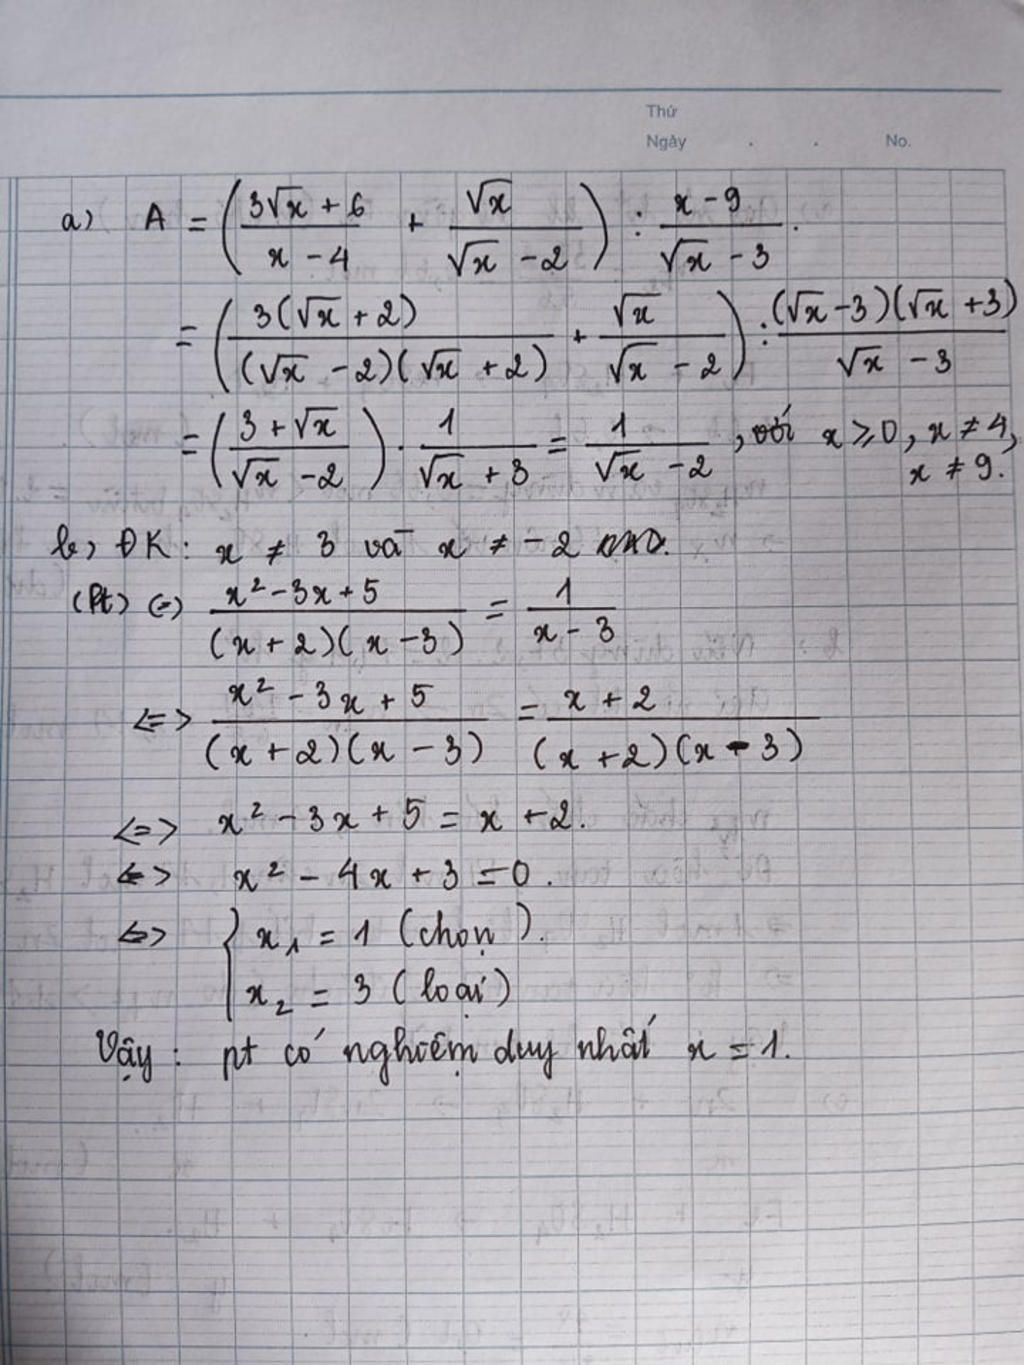 Thứ
Ngày . . No.
a) A = ( (3√x + 6)/(x - 4) + √x/(√x - 2) ) : (x - 9)/(√x - 3) .
= ( 3(√x + 2)/((√x - 2)(√x + 2)) + √x/(√x - 2) ) : ((√x - 3)(√x + 3))/(√x - 3)
= ( (3 + √x)/(√x - 2) ) . 1/(√x + 3) = 1/(√x - 2) , với x ≥ 0, x ≠ 4,
x ≠ 9.
b) ĐK : x ≠ 3 và x ≠ -2
(Pt) (=) (x² - 3x + 5)/((x + 2)(x - 3)) = 1/(x - 3)
<=> (x² - 3x + 5)/((x + 2)(x - 3)) = (x + 2)/((x + 2)(x - 3))
<=> x² - 3x + 5 = x + 2.
<=> x² - 4x + 3 = 0 .
<=> { x₁ = 1 (chọn).
x₂ = 3 (loại)
Vậy : pt có nghiệm duy nhất x = 1.